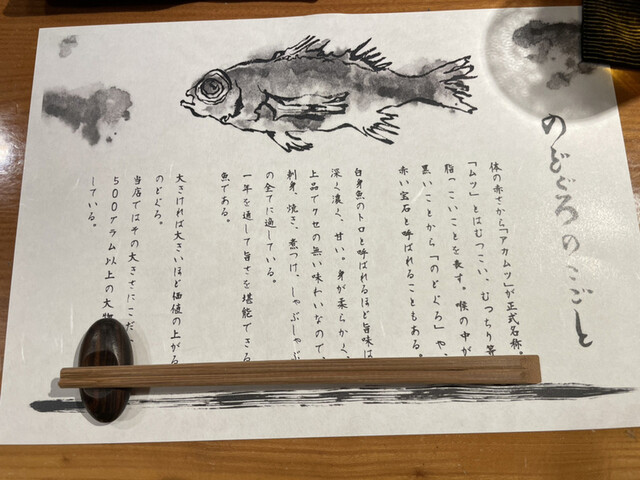 のどぐろのこごと
体の赤さから「アカムツ」が正式名称。
「ムツ」とはむつこい、むっちり等
脂っこいことを表す。喉の中が
黒いことから「のどぐろ」や、
赤い宝石と呼ばれることもある。
白身魚のトロと呼ばれるほど旨味は
深く濃く、甘い。身が柔らかく、
上品でクセの無い味わいなので、
刺身、焼き、煮つけ、しゃぶしゃぶ
の全てに適している。
一年を通して旨さを堪能できる
魚である。
大きければ大きいほど価値の上がる
のどぐろ。
当店ではその大きさにこだ
500グラム以上の大物
している。